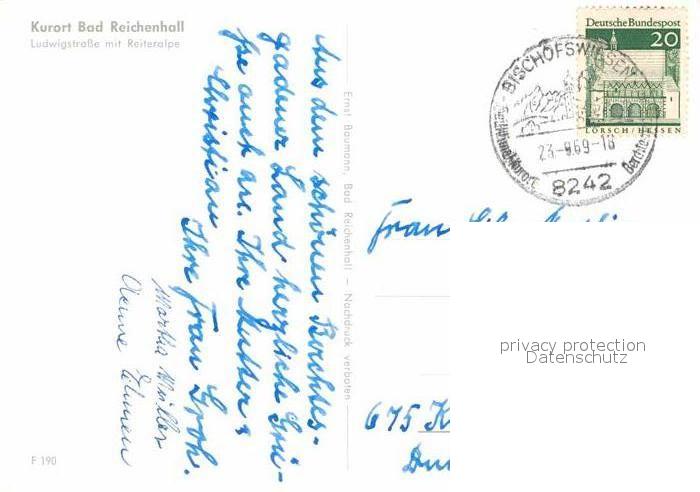 Kurort Bad Reichenhall
Ludwigstraße mit Reiteralpe
Aus dem schönen Berchtes-
gadener Land herzliche Grü-
ße auch an Ihre Mutter &
Christian
Ihre Frau Groh.
Martha Müller
F 190
Ernst Baumann, Bad Reichenhall — Nachdruck verboten
Deutsche Bundespost
20
LORSCH/HESSEN
BISCHOFSWIESEN
23.-9.69-18
8242
Frau
privacy protection
Datenschutz
675 K